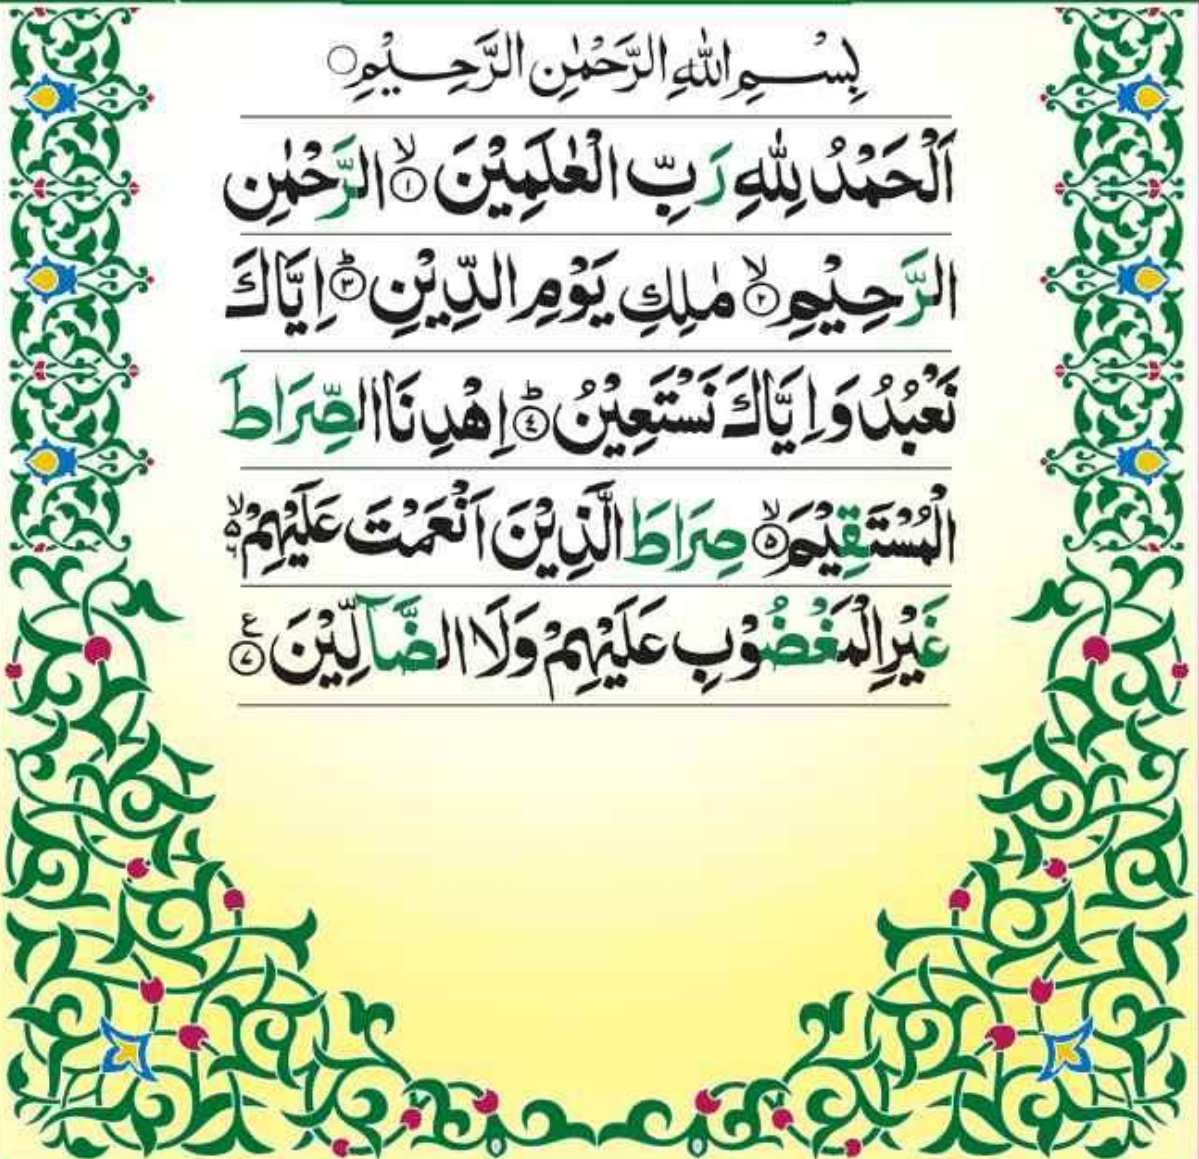 بِسْمِ اللهِ الرَّحْمٰنِ الرَّحِيْمِ ○
اَلْحَمْدُ لِلّٰهِ رَبِّ الْعٰلَمِيْنَ ۙ ۱ الرَّحْمٰنِ
الرَّحِيْمِ ۙ ۲ مٰلِكِ يَوْمِ الدِّيْنِ ؕ ۳ اِيَّاكَ
نَعْبُدُ وَ اِيَّاكَ نَسْتَعِيْنُ ؕ ٤ اِهْدِنَا الصِّرَاطَ
الْمُسْتَقِيْمَ ۙ ۵ صِرَاطَ الَّذِيْنَ اَنْعَمْتَ عَلَيْهِمْ ۙ ۵ ۶
غَيْرِ الْمَغْضُوْبِ عَلَيْهِمْ وَلَا الضَّآلِّيْنَ ع ۷